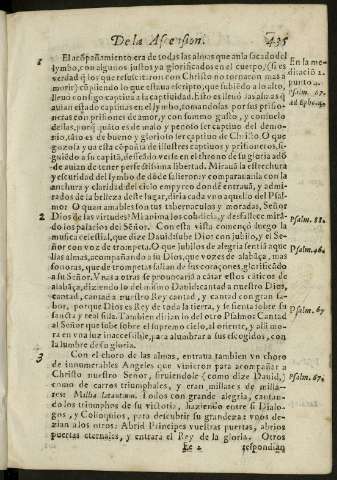 De la Ascension. 435
1 El acõpañamiento era de todas las almas que auia sacado del
lymbo, con algunos justos ya glorificados en el cuerpo, (si es
verdad q̃ los que resuscitaron con Christo no tornaron mas a
morir) cũpliendo lo que estaua escripto, que subiẽdo a lo alto,
lleuó consigo captiua a la captiuidad. Esto es lleuó las almas q̃
auian estado captiuas en el lymbo, tomandolas por sus prisio-
neras con prisiones de amor, y con summo gusto, y consuelo
dellas, porq̃ quãto es de malo y penoso ser captiuo del demo-
nio, tãto es de bueno y glorioso ser captiuo de Christo. O que
gozosa yua esta cõpañia de illustres captiuos y prisioneros, si-
guiẽdo a su capitã, desseãdo verse en el throno de su gloria adõ
de auian de tener perfectissima libertad. Mirauã la estrechura
y escuridad del lymbo de dõde salieron: y comparauanla con la
anchura y claridad del cielo empyreo dondẽ entrauã, y admi-
rados de la belleza deste lugar, diria cada vno aquello del Psal-
mo. O quan amables son tus tabernaculos y moradas, Señor
2 Dios de las virtudes! Mi anima los cobdicia, y desfallece mirã-
do los palacios del Señor. Con esta vista començó luego la
musica celestial, que dize Dauid: sube Dios con jubilo, y el Se-
ñor con voz de trompeta. O que jubilos de alegria sentiã aque
llas almas, acompañando a su Dios, que vozes de alabãça, mas
sonoras, que de trompetas saliã de sus coraçones, glorificãdo
a su Señor. Vnas a otras se prouocariã a cãtar estos cãticos de
alabãça, diziendo lo del mismo Dauid: cantad a nuestro Dios,
cantad, cantad a nuestro Rey cantad, y cantad con gran sa-
bor, porque Dios es Rey de toda la tierra, y se sienta sobre su
sancta y real silla. Tambien dirian lo del otro Psalmo: Cantad
al Señor que sube sobre el supremo cielo, al oriente, y allí mo-
ra en voa luz inaccessible, para alumbrar a sus escogidos, con
la lumbre de su gloria.
3 Con el choro de las almas, entraua tambien vn choro
de innumerables Angeles que vinieron para acompañar a
Christo nuestro Señor, siruiendole (como dize Dauid,)
como de carros triumphales, y eran millares de milla-
res: Millia lætantium. Todos con grande alegria, cantan-
do los triumphos de su victoria, haziendo entre si Dialo-
gos, y Coloquios, para descubrir su grandeza: vnos de-
zian a los otros: Abrid Principes vuestras puertas, abrios
puertas eternales, y entrara el Rey de la gloria. Otros
Ee 2 respondian
En la me-
ditaciõ 2.
punto 2.
Psalm. 67.
ad Ephe. 4.
Psalm. 83.
Psalm. 46.
Psalm. 67
Psalm. 67.